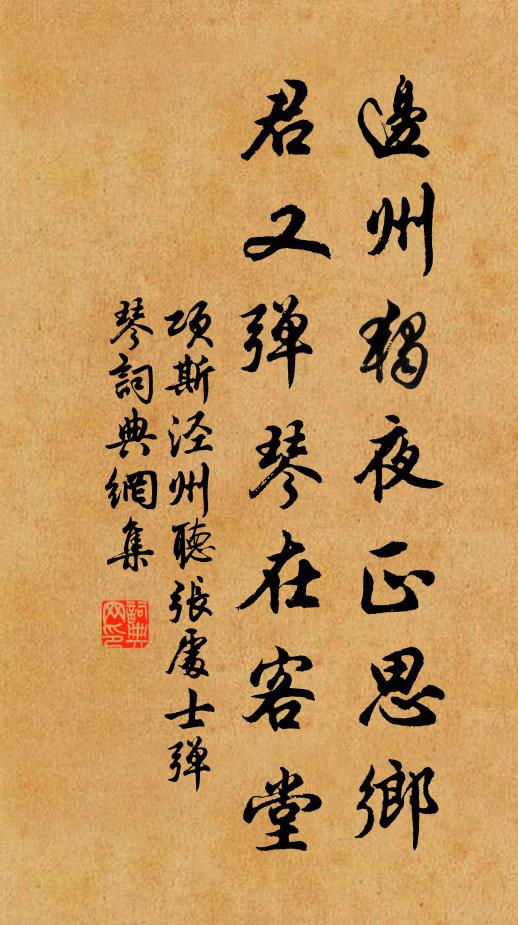 邊州獨夜正思鄉
君又弾琴在客堂
項斯涇州聽張處士弾
琴詞典網集
詞典
网印